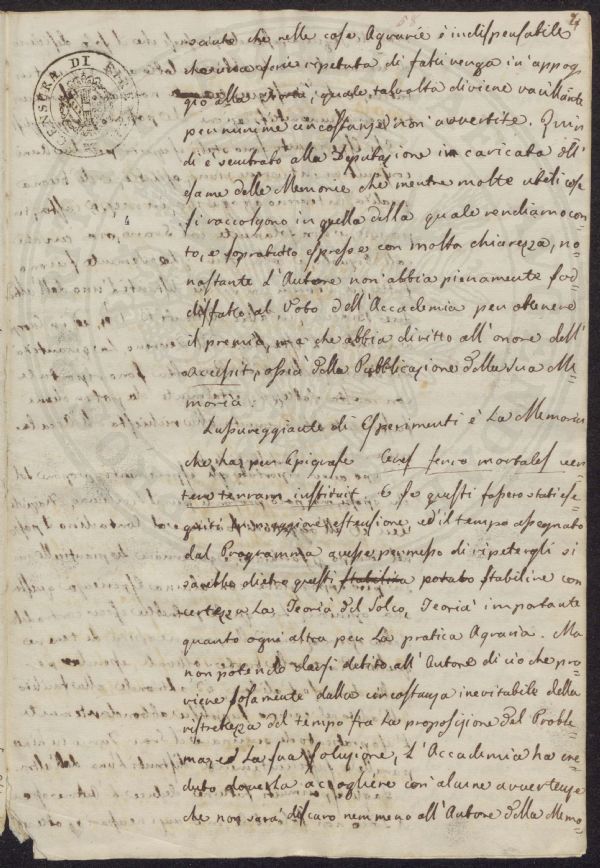 24
CENSURA DI FIRE
vedute che nelle cose Agrarie è indispensabile
che una serie ripetuta di fatti venga in appog=
gio alla teoria, quale talvolta diviene vacillante
per minime circostanze non avvertite. Quin
di è sembrato alla Deputazione incaricata dell'
esame delle Memorie che mentre molte utili cose
si raccolgono in quella della quale rendiamo con=
to, e soprattutto espresse con molta chiarezza, no=
nostante l'Autore non abbia pienamente sod=
disfatto al Voto dell'Accademia per ottenere
il premio, ma che abbia diritto all'onore dell'
accessit, ossia della Pubblicazione della sua Me=
moria.
Lussureggiante di Esperimenti è La Memoria
che ha per Epigrafe Ceres ferro mortales ver=
tere terram instituit. E se questi fossero stati ese=
guiti in maggiore estensione, ed il tempo assegnato
dal Programma avesse permesso di ripetergli si
sarebbe dietro questi stabilita potuto stabilire con
certezza La Teoria del Solco, Teoria importante
quanto ogni altra per La pratica Agraria. Ma
non potendo darsi debito all'Autore di ciò che pro=
viene solamente dalla circostanza inevitabile della
ristrettezza del tempo fra La proposizione del Proble=
ma, ed La sua soluzione, L'Accademia ha cre=
duto doverla accogliere con alcune avvertenze
che non sarà discaro nemmeno all'Autore della Memo=